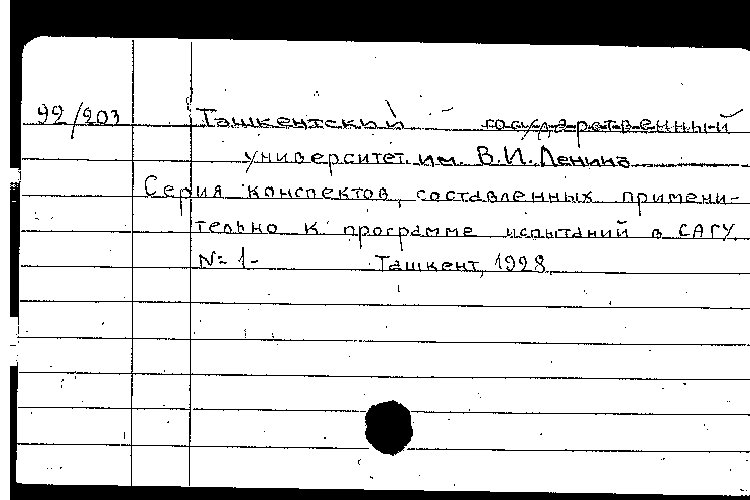 92/203 Ташкентский государственный
университет им. В.И. Ленина
Серия конспектов, составленных примени-
тельно к программе испытаний в САГУ.
№ 1- Ташкент, 1928